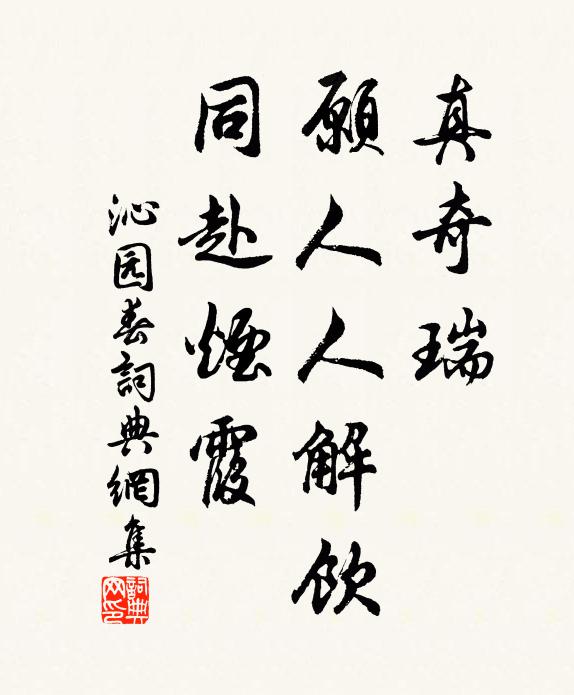 真奇瑞
願人人解飲
同赴煙霞
沁园春詞典網集
詞典网印